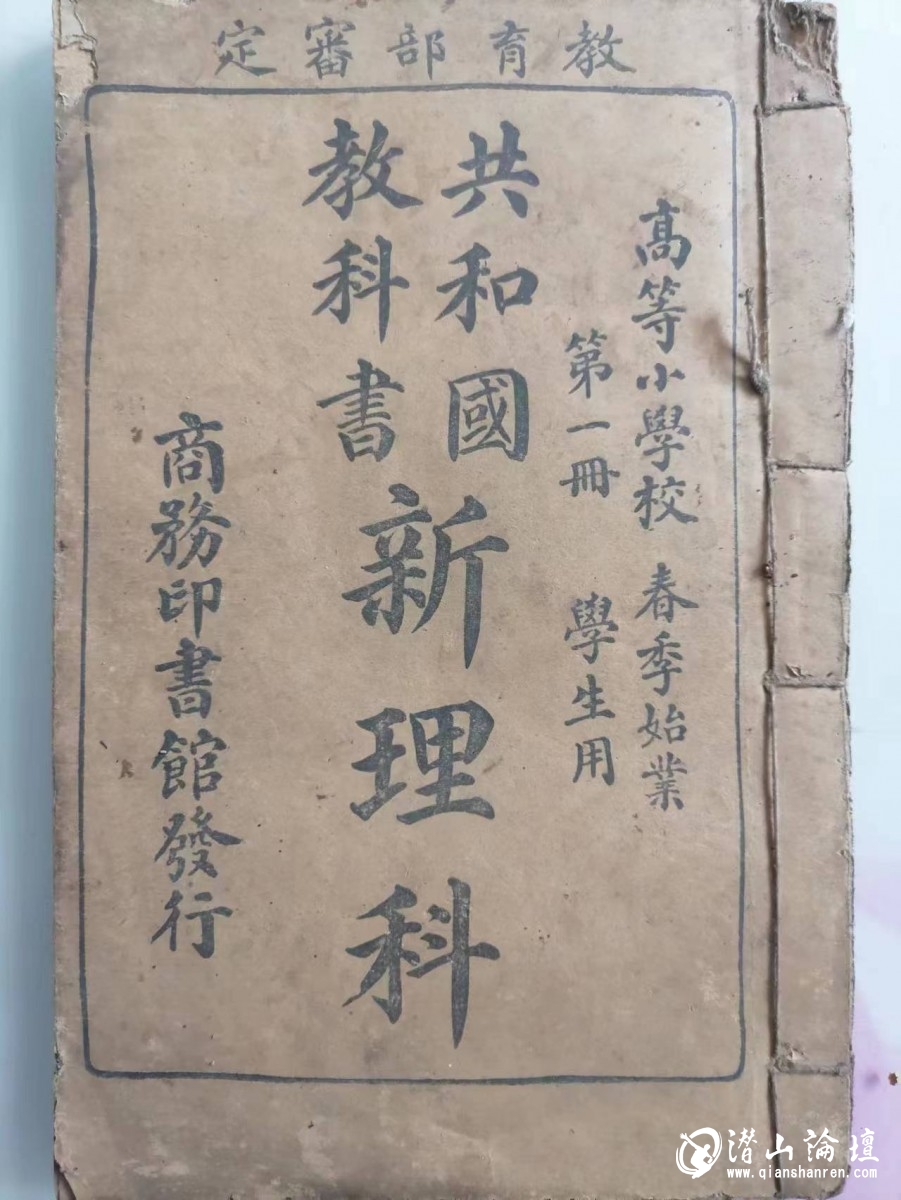 教育部審定
高等小學校 春季始業
第一冊 學生用
共和國
教科書
新理科
商務印書館發行
潜山論壇
www.qianshanren.com